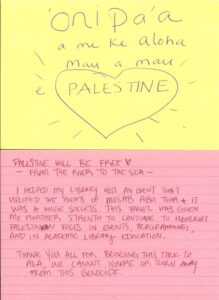 ʻonipaʻa
a me ke aloha
mau a mau
e PALESTINE
PALESTINE WILL BE FREE ♥
- FROM THE RIVER TO THE SEA -
I HELPED MY LIBRARY HOST AN EVENT THAT
UPLIFTED THE POETRY OF MOSAB ABU TOHA +
IT WAS A HUGE SUCCESS. THIS PANEL HAS GIVEN
ME FURTHER STRENGTH TO CONTINUE TO HIGHLIGHT
PALESTINIAN VOICES IN EVENTS, PROGRAMMING,
AND IN ACADEMIC LIBRARY EDUCATION.
THANK YOU ALL FOR BRINGING THIS TALK TO
ALA, WE CANNOT IGNORE OR TURN AWAY
FROM THIS GENOCIDE.